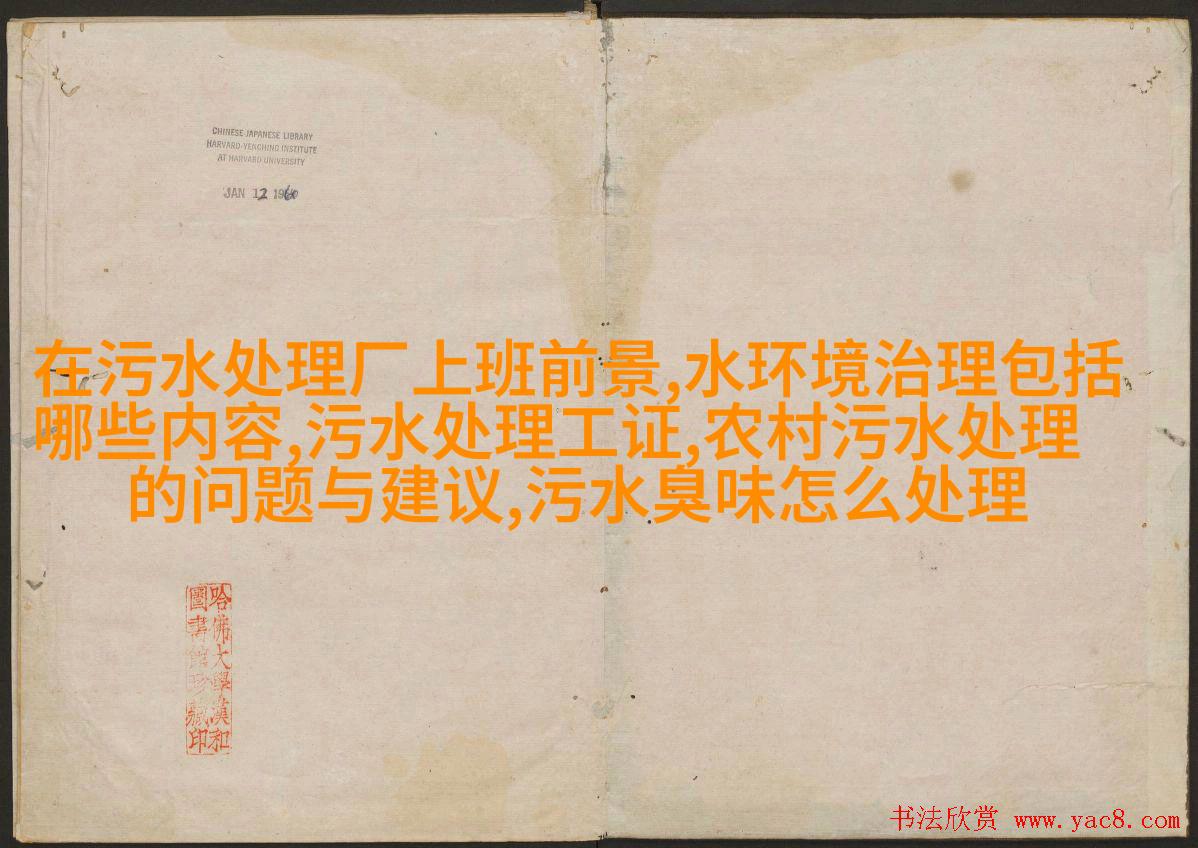 CHINESE-JAPANESE LIBRARY
HARVARD-YENCHING INSTITUTE
AT HARVARD UNIVERSITY
JAN 12 1960
在污水处理厂上班前景,水环境治理包括
哪些内容,污水处理工证,农村污水处理
的问题与建议,污水臭味怎么处理
哈佛大學漢和
圖書館珍藏印
书法欣赏 www.yac8.com